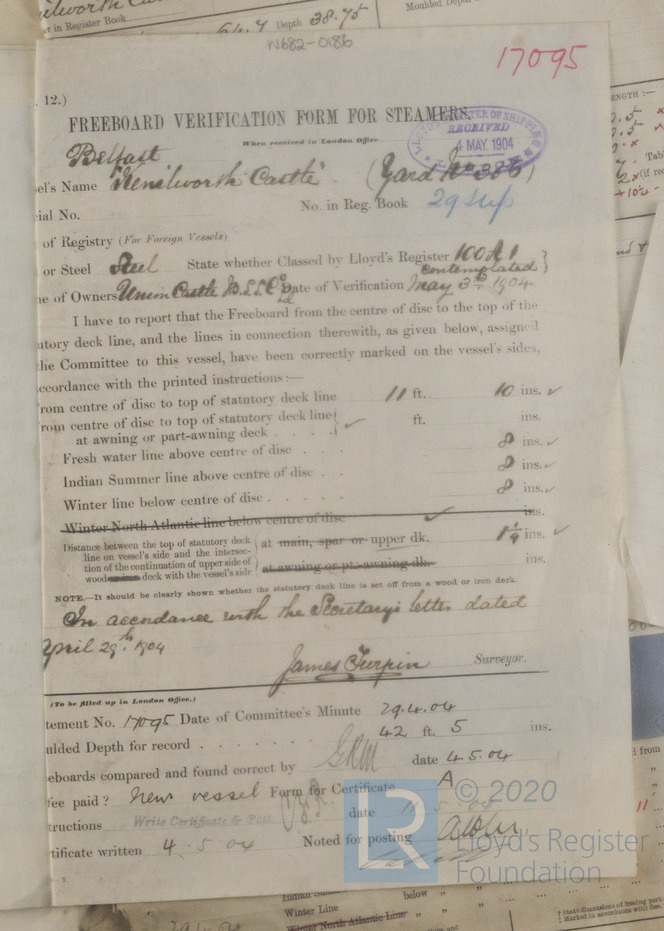 er in Register Book
64.7 Depth 38.75
Moulded Depth
W682-0186
17095
. 12.)
FREEBOARD VERIFICATION FORM FOR STEAMERS.
When received in London Office
LLOYD'S REGISTER OF SHIPPING
RECEIVED
4 MAY 1904
Belfast
sel's Name "Kenilworth Castle" (Yard No 386)
ial No. No. in Reg. Book 29 Sup
of Registry (For Foreign Vessels)
or Steel Steel State whether Classed by Lloyd's Register 100A1
contemplated
e of Owners Union Castle M.S.S.Co Ld Date of Verification May 3rd 1904
I have to report that the Freeboard from the centre of disc to the top of the
utory deck line, and the lines in connection therewith, as given below, assigned
the Committee to this vessel, have been correctly marked on the vessel's sides,
ccordance with the printed instructions:—
rom centre of disc to top of statutory deck line 11 ft. 10 ins. ✓
rom centre of disc to top of statutory deck line ✓ ft. ins.
at awning or part-awning deck . . . .
Fresh water line above centre of disc . . . 8 ins. ✓
Indian Summer line above centre of disc . . 8 ins. ✓
Winter line below centre of disc . . . . . 8 ins. ✓
Winter North Atlantic line below centre of disc ✓ ins.
Distance between the top of statutory deck
line on vessel's side and the intersec-
tion of the continuation of upper side of
wood deck with the vessel's side
at main, spar or upper dk. ins. ✓
at awning or pt.-awning dk. ins.
NOTE.—It should be clearly shown whether the statutory deck line is set off from a wood or iron deck.
In accordance with the Secretary's letter dated
April 29th 1904
James Turpin Surveyor.
(To be filled up in London Office.)
tement No. 17095 Date of Committee's Minute 29.4.04
ulded Depth for record . . . . . . . 42 ft. 5 ins.
eeboards compared and found correct by GRM date 4.5.04
fee paid? New vessel Form for Certificate A
tructions Write Certificate & Post. date
tificate written 4.5.04 Noted for posting
© 2020
LR
Lloyd's Register
Foundation
below " "
Winter Line " " "
Winter North Atlantic Line " "